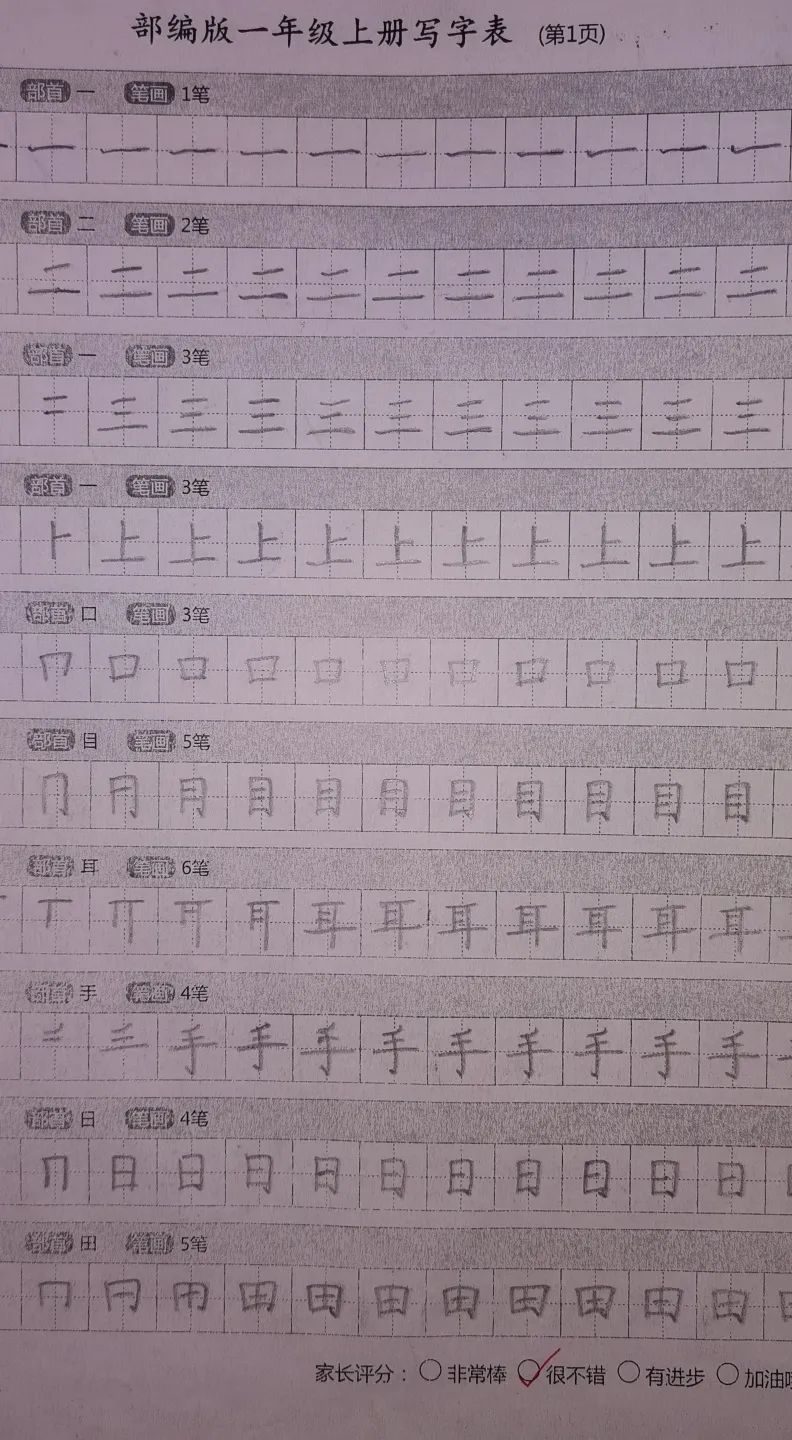 部编版一年级上册写字表 (第1页)
部首 一 笔画 1笔
一 一 一 一 一 一 一 一 一 一 一
部首 二 笔画 2笔
二 二 二 二 二 二 二 二 二 二 二
部首 一 笔画 3笔
二 三 三 三 三 三 三 三 三 三 三
部首 一 笔画 3笔
⺊ 上 上 上 上 上 上 上 上 上 上
部首 口 笔画 3笔
冂 口 口 口 口 口 口 口 口 口 口
部首 目 笔画 5笔
冂 月 月 目 目 目 目 目 目 目 目
部首 耳 笔画 6笔
丅 丌 耳 耳 耳 耳 耳 耳 耳
部首 手 笔画 4笔
三 手 手 手 手 手 手 手 手 手
部首 日 笔画 4笔
冂 日 日 日 日 日 日 日 日 日 日
部首 田 笔画 5笔
冂 田 田 田 田 田 田 田 田
家长评分： 非常棒 很不错 有进步 加油